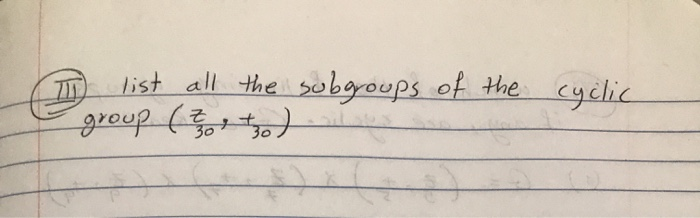 III list all the subgroups of the cyclic
group (Z₃₀, +₃₀)